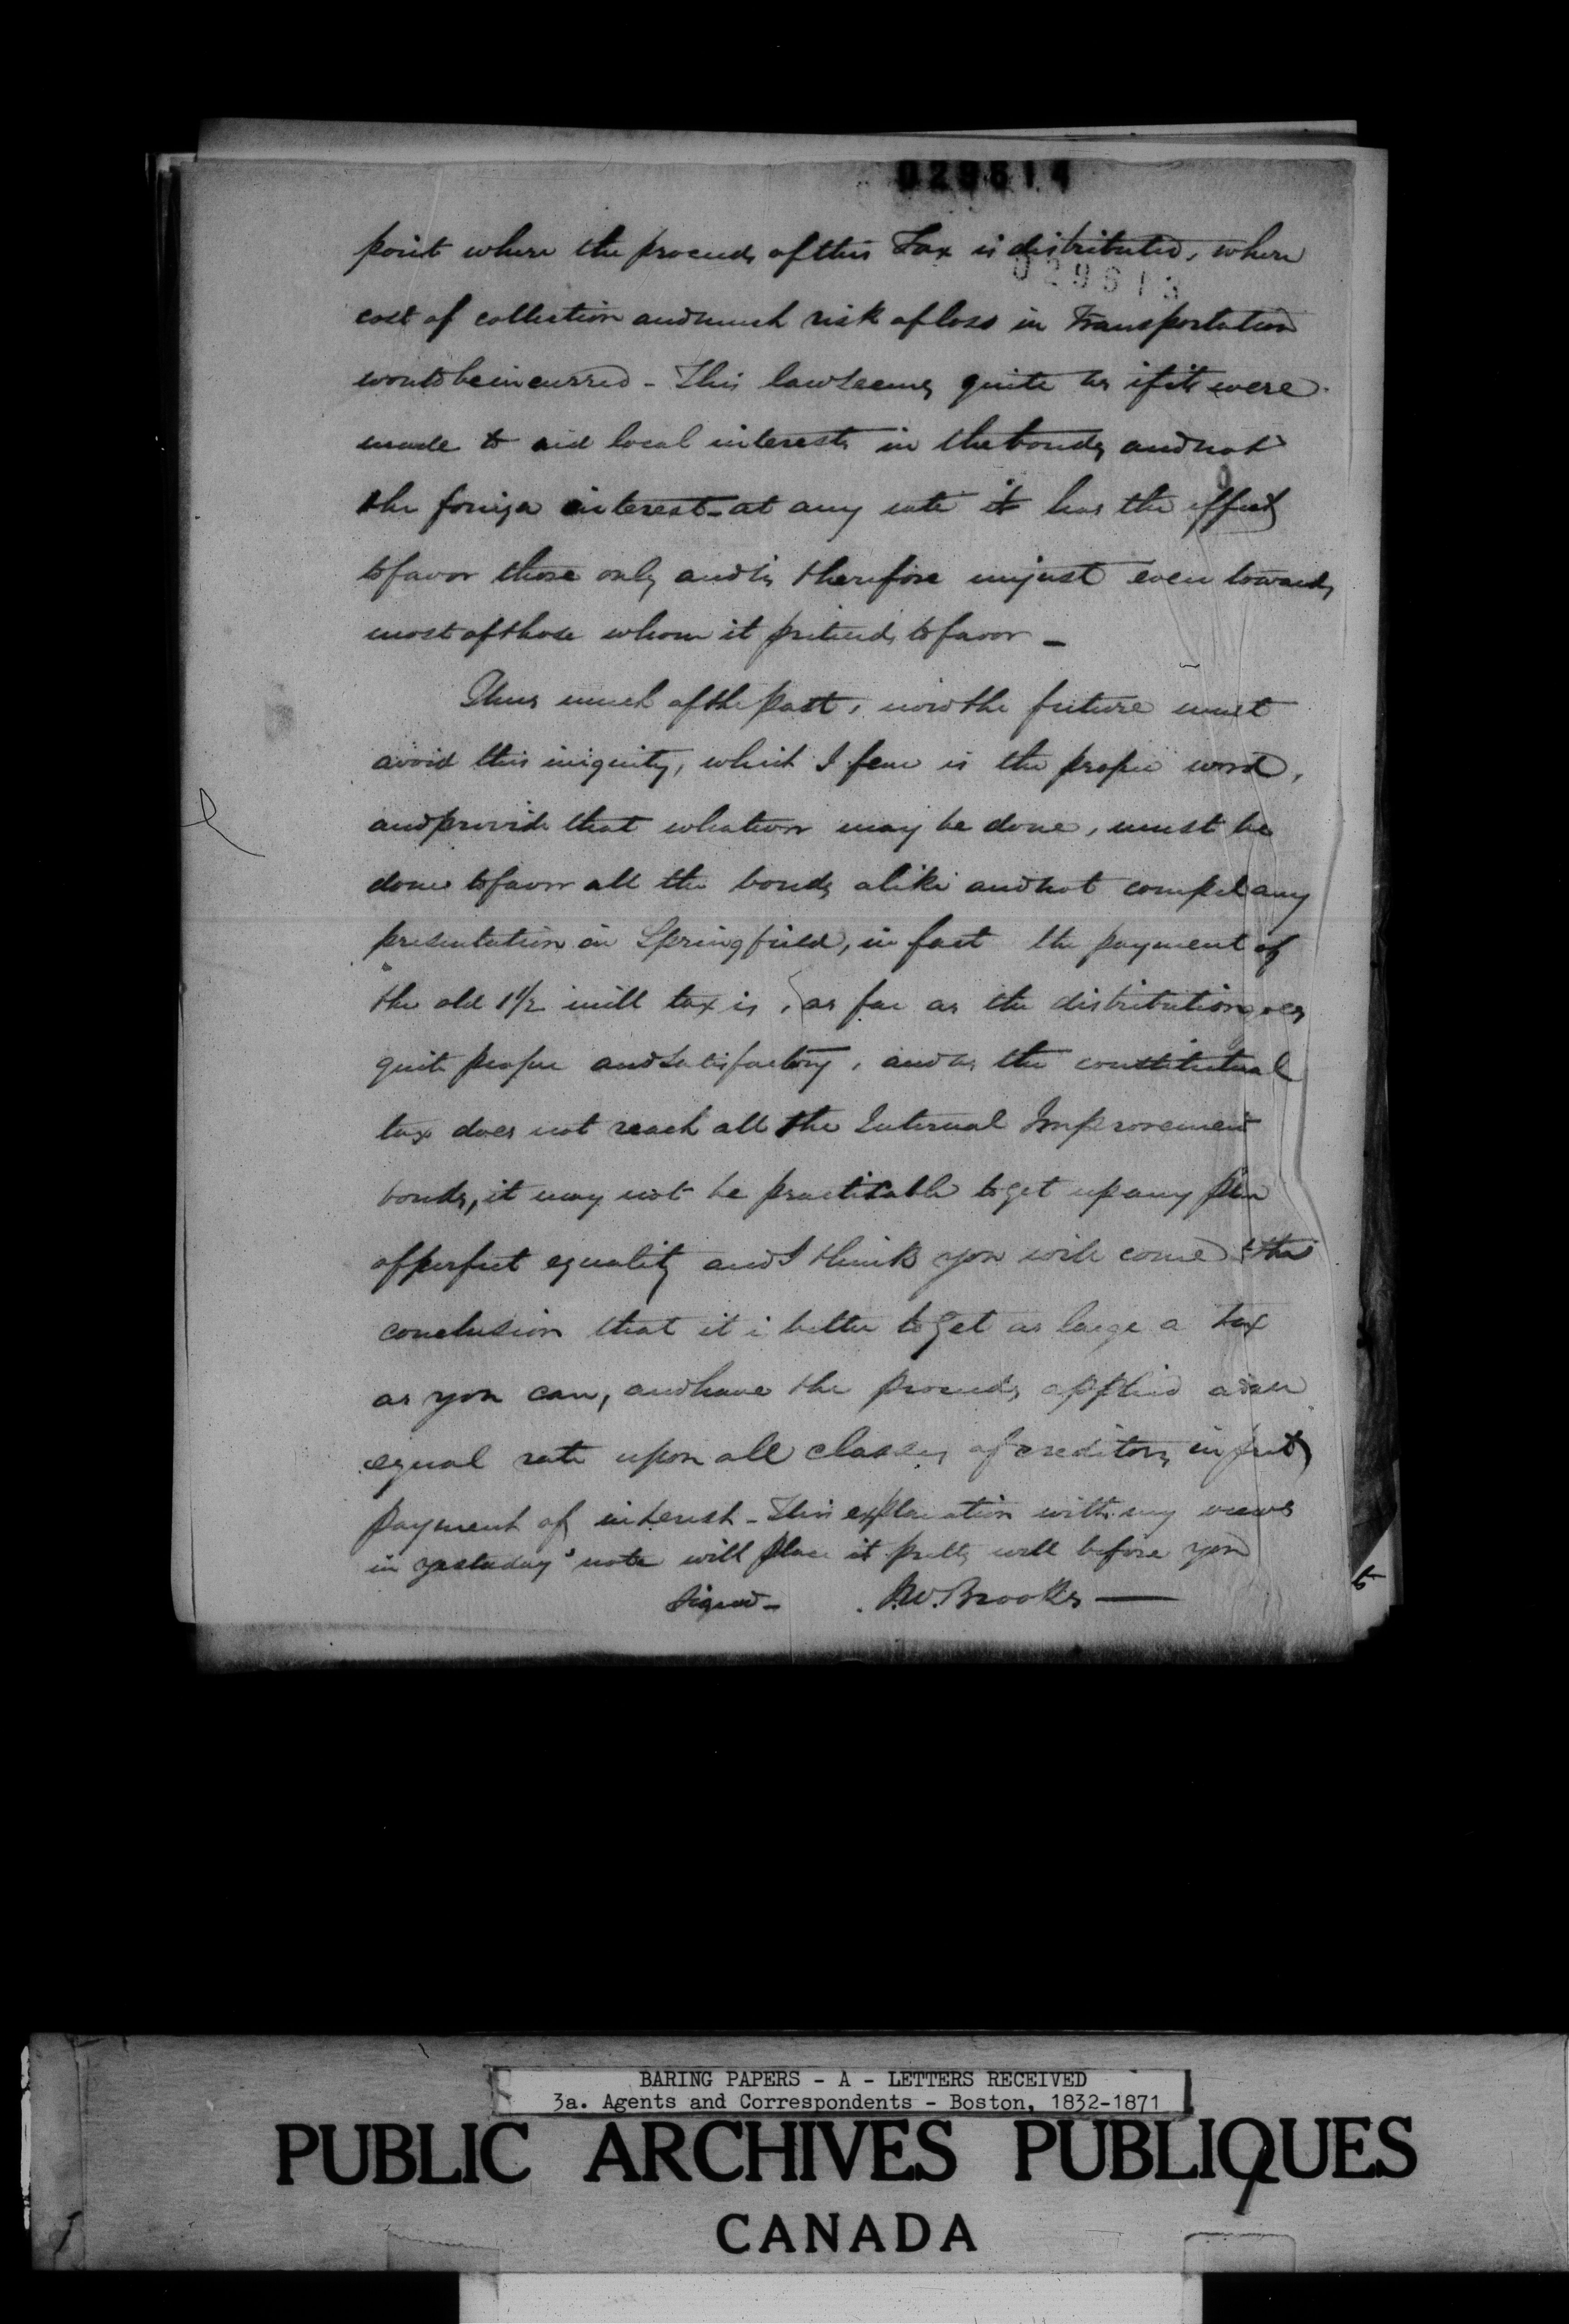 029614
point where the proceeds of this Tax is distributed, where
029613
cost of collection and much risk of loss in Transportation
would be incurred - This law seems quite as if it were
made to aid local interests in the bonds and not
the foreign interest - at any rate it has the effect
to favor those only and is therefore unjust even towards
most of those whom it pretends to favor -
Thus much of the past, now the future must
avoid this iniquity, which I fear is the proper word,
and provide that whatever may be done, must be
done to favor all the bonds alike and not compel any
presentation in Springfield, in fact the payment of
the old 1 1/2 mill tax is, as far as the distribution goes
quite proper and satisfactory, and as the constitutional
tax does not reach all the Internal Improvement
bonds, it may not be practicable to get up any plan
of perfect equality and I think you will come to the
conclusion that it is better to get as large a tax
as you can, and have the proceeds applied at an
equal rate upon all classes of creditors in part
payment of interest - This explanation with my views
in yesterday's note will place it pretty well before you
Signed - J.W. Brooks
BARING PAPERS - A - LETTERS RECEIVED
3a. Agents and Correspondents - Boston, 1832-1871
PUBLIC ARCHIVES PUBLIQUES
CANADA